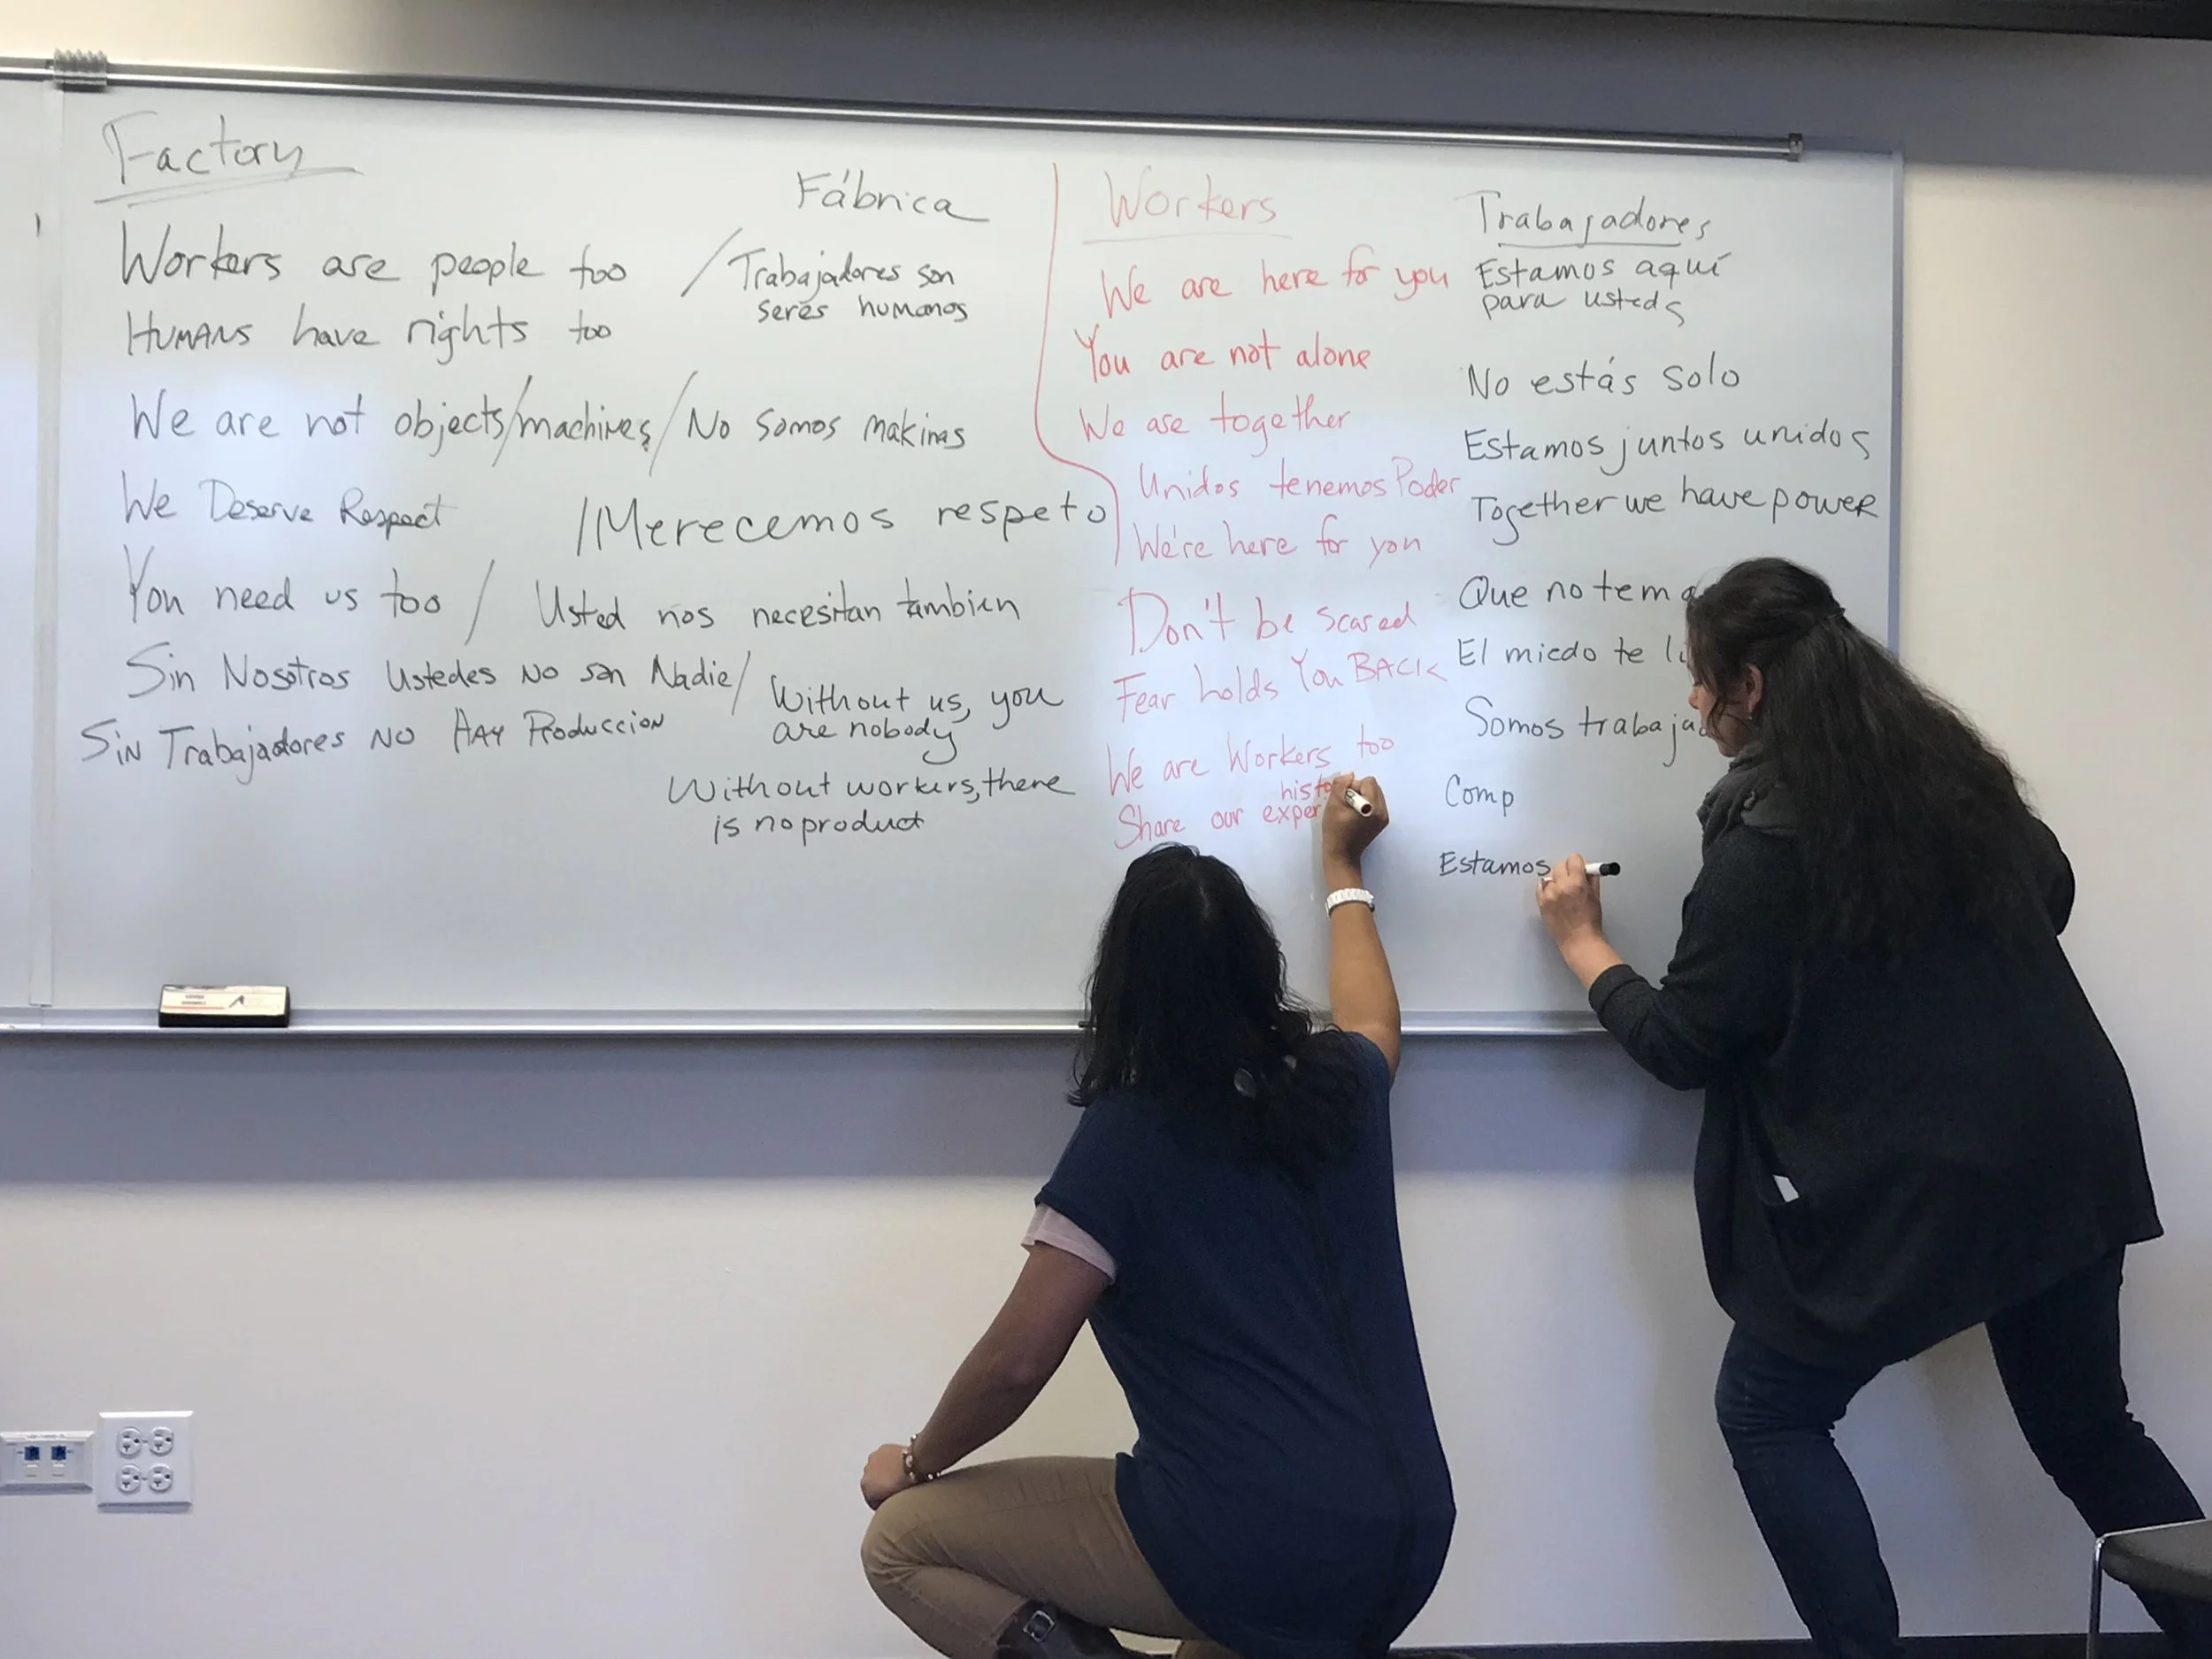 Factory
Workers are people too /
HUMANS have rights too
We are not objects/machines/
We Deserve Respect
You need us too /
Sin Nosotros Ustedes No son Nadie/
Sin Trabajadores NO HAY Produccion
Fábrica
Trabajadores son
seres humanos
No somos makinas
/Merecemos respeto
Usted nos necesitan tambien
Without us, you
are nobody
Without workers, there
is no product
Workers
We are here for you
You are not alone
We are together
Unidos tenemos Poder
We're here for you
Don't be scared
Fear holds You BACK
We are Workers too
Share our
Trabajadores
Estamos aquí
para usteds
No estás solo
Estamos juntos unidos
Together we have power
Que no
El miedo te
Somos
Comp
Estamos